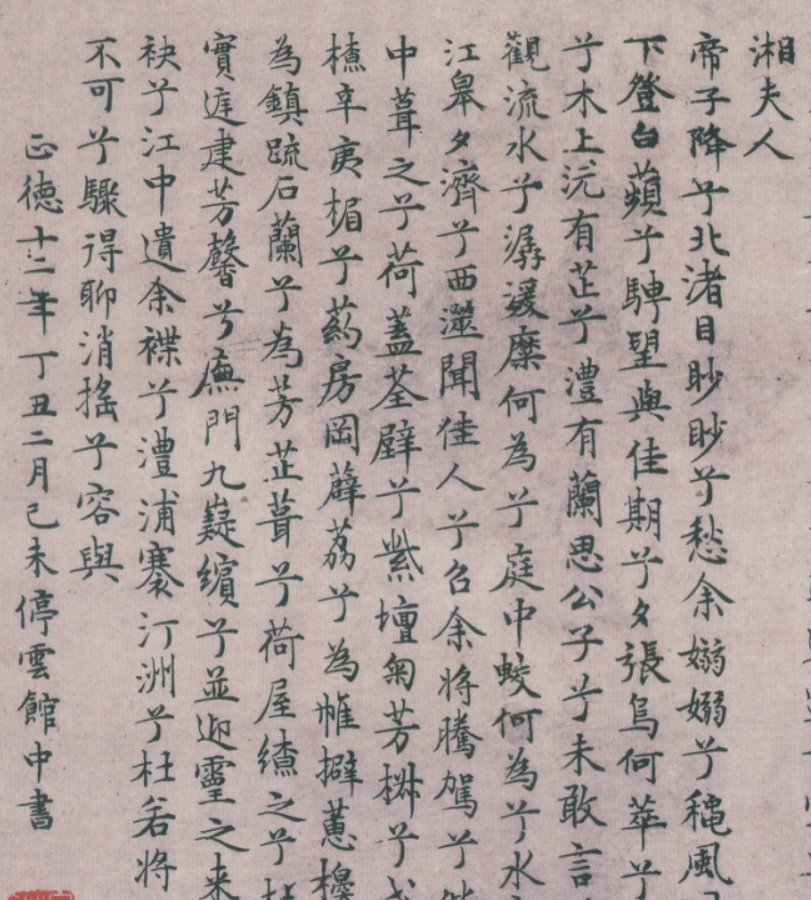 湘夫人
帝子降兮北渚目眇眇兮愁余嫋嫋兮穐風
下登白蘋兮騁望與佳期兮夕張鳥何萃兮
木上沅有芷兮澧有蘭思公子兮未敢言
觀流水兮潺湲麋何為兮庭中蛟何為兮水
江皋夕濟兮西澨聞佳人兮召余將騰駕兮
中葺之兮荷蓋荃壁兮紫壇匊芳椒兮
橑辛夷楣兮葯房罔薜荔兮為帷擗蕙櫋
為鎮疏石蘭兮為芳芷葺兮荷屋繚之兮杜
實庭建芳馨兮廡門九嶷繽兮並迎靈之来
袂兮江中遺余褋兮澧浦搴汀洲兮杜若將
不可兮驟得聊消搖兮容與
正德十二年丁丑二月己未停雲館中書